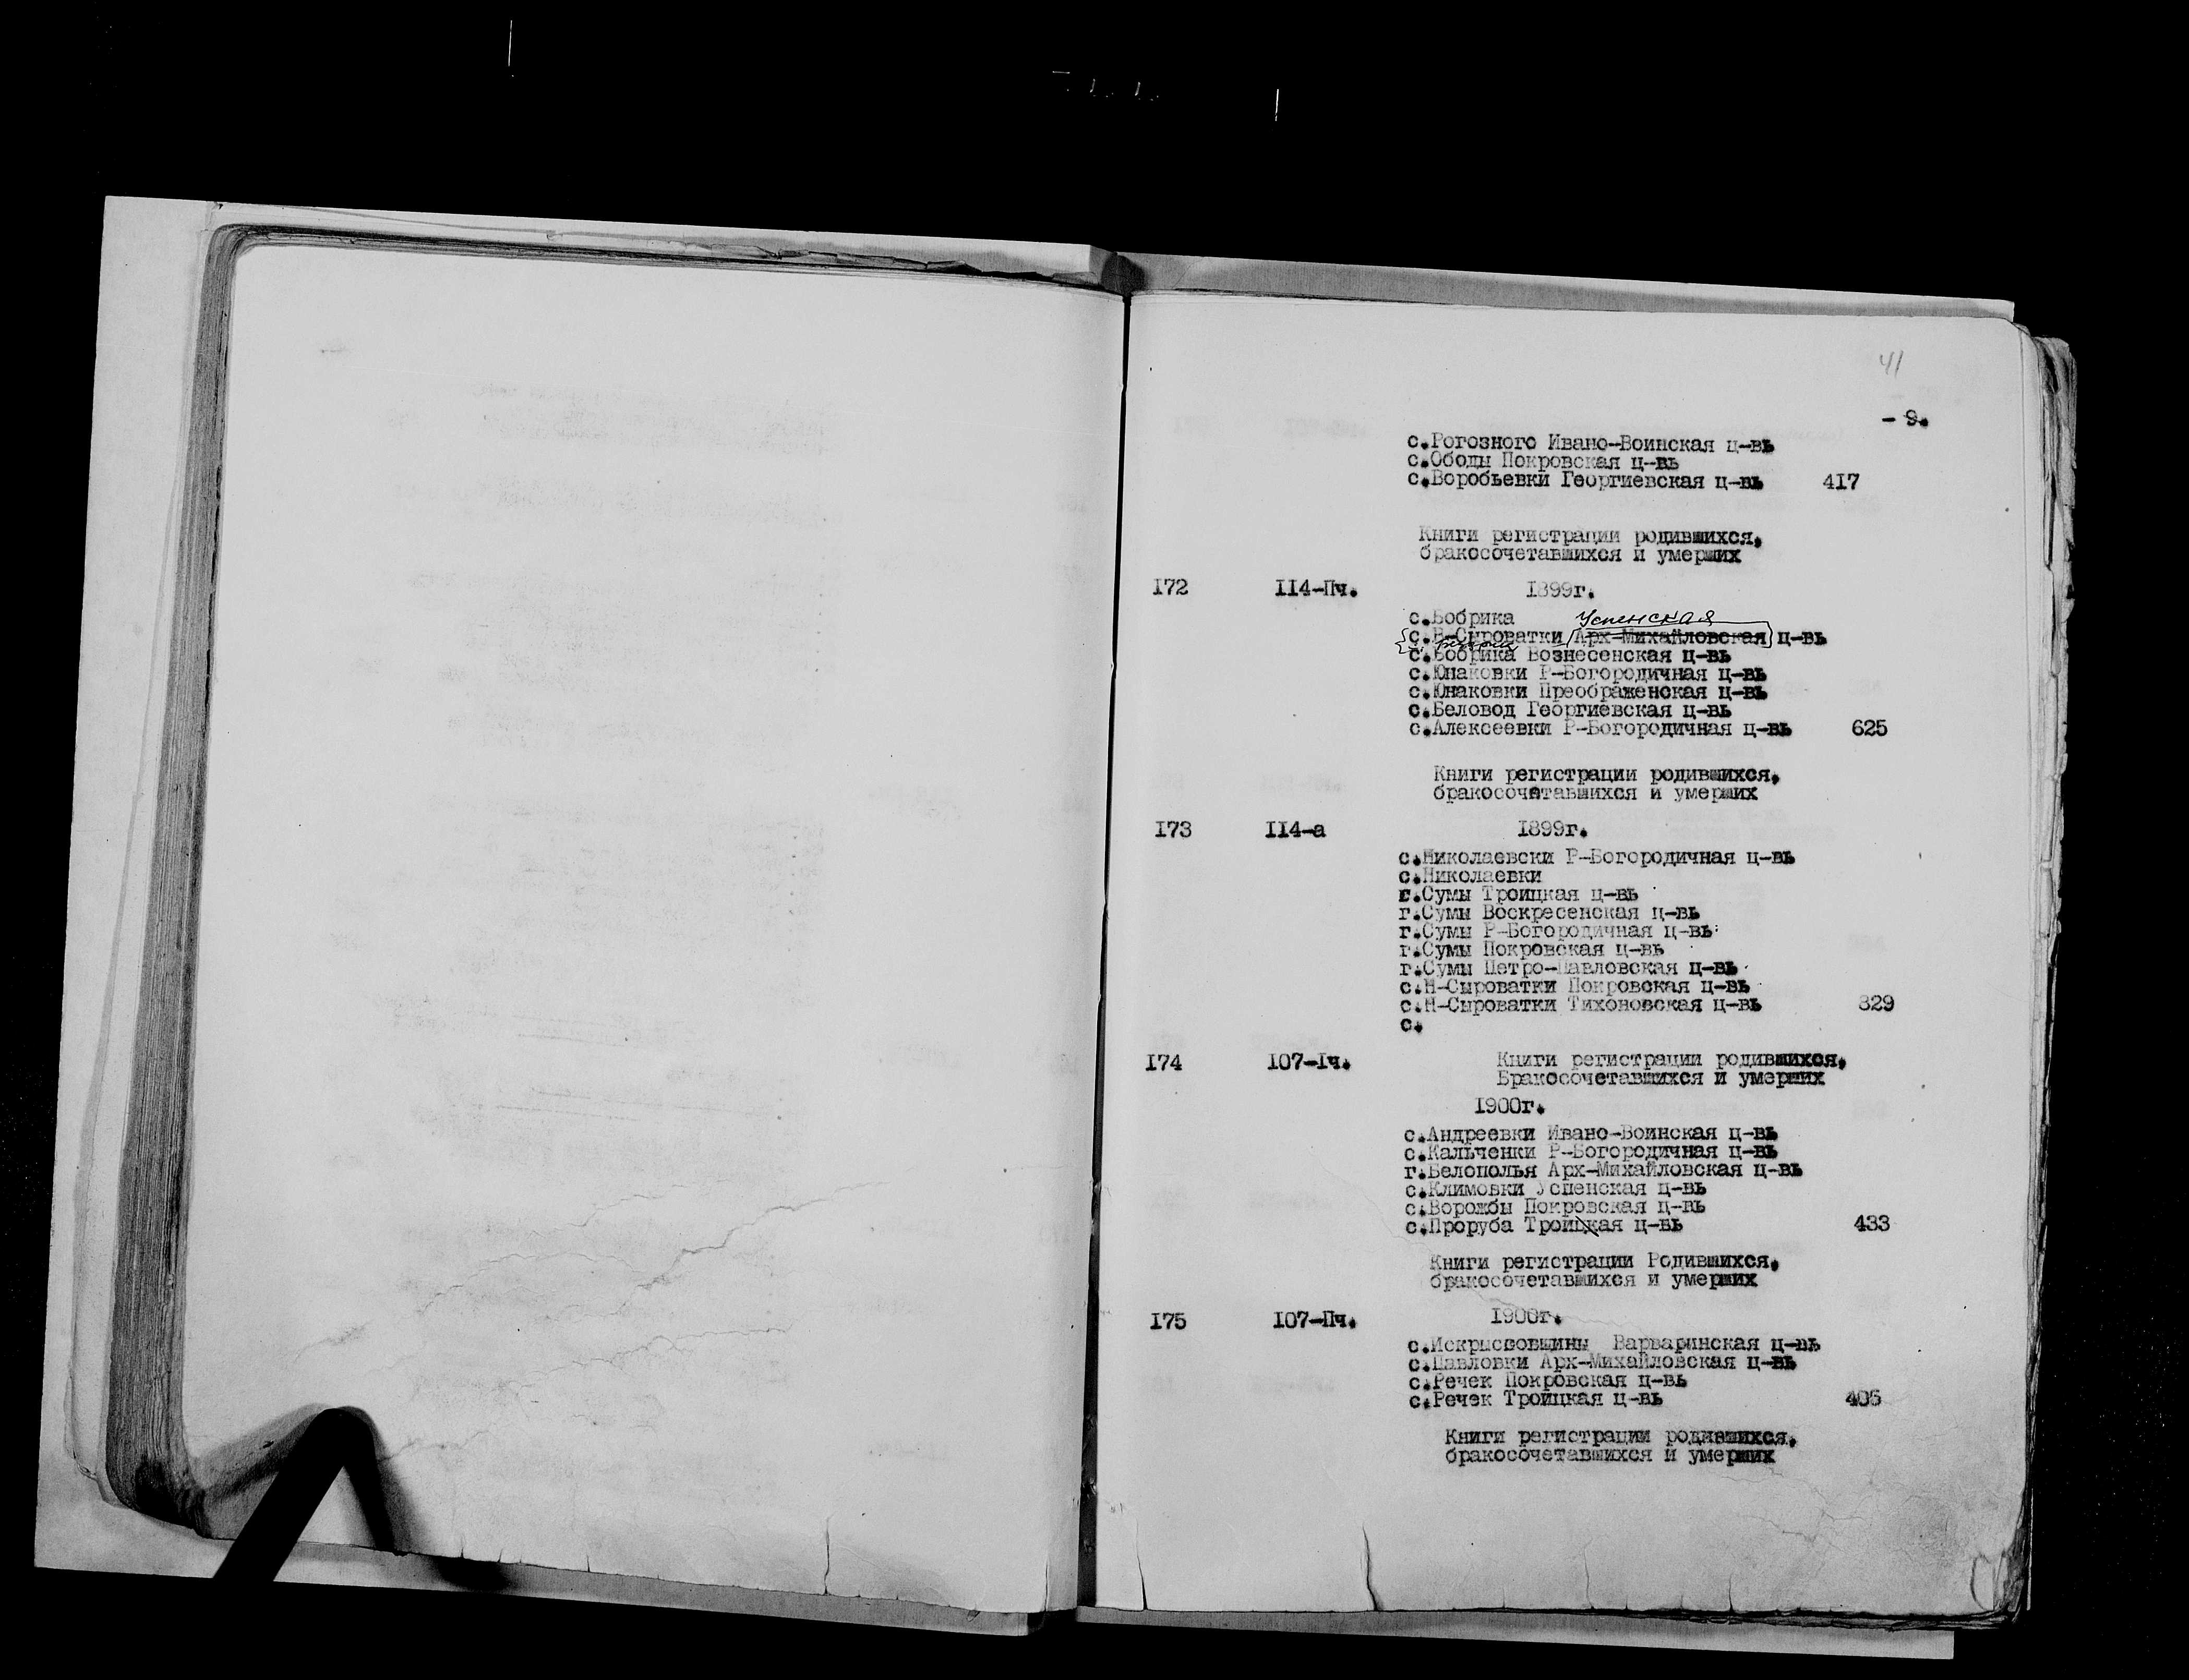 41
- 9.
с.Рогозного Ивано-Воинская ц-вь
с.Ободы Покровская ц-вь
с.Воробьевки Георгиевская ц-вь 417
Книги регистрации родившихся,
бракосочетавшихся и умерших
172 114-Пч. 1899г.
с.Бобрика Успенская
с.В-Сыроватки Арх-Михайловская ц-вь
с.Бобрика Вознесенская ц-вь
с.Юнаковки Р-Богородичная ц-вь
с.Юнаковки Преображенская ц-вь
с.Беловод Георгиевская ц-вь
с.Алексеевки Р-Богородичная ц-вь 625
Книги регистрации родившихся,
бракосочетавшихся и умерших
173 114-а 1899г.
с.Николаевски Р-Богородичная ц-вь
с.Николаевки
г.Сумы Троицкая ц-вь
г.Сумы Воскресенская ц-вь
г.Сумы Р-Богородичная ц-вь
г.Сумы Покровская ц-вь
г.Сумы Петро-Павловская ц-вь
с.Н-Сыроватки Покровская ц-вь
с.Н-Сыроватки Тихоновская ц-вь 829
с.
174 107-1ч. Книги регистрации родившихся,
Бракосочетавшихся и умерших
1900г.
с.Андреевки Ивано-Воинская ц-вь
с.Кальченки Р-Богородичная ц-вь
г.Белополья Арх-Михайловская ц-вь
с.Климовки Успенская ц-вь
с.Ворожбы Покровская ц-вь
с.Проруба Троицкая ц-вь 433
Книги регистрации Родившихся,
бракосочетавшихся и умерших
175 107-Пч. 1900г.
с.Искрисовщины Варваринская ц-вь
с.Павловки Арх-Михайловская ц-вь
с.Речек Покровская ц-вь
с.Речек Троицкая ц-вь 405
Книги регистрации родившихся,
бракосочетавшихся и умерших